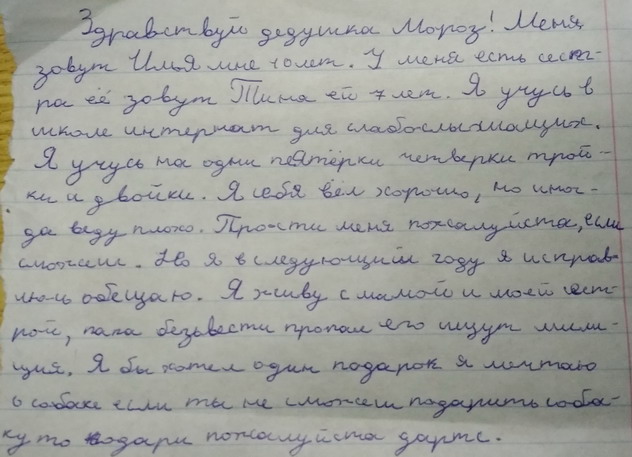 Здравствуй дедушка Мороз! Меня
зовут Илья мне 10 лет. У меня есть сест-
ра её зовут Тина ей 7 лет. Я учусь в
школе интернат для слабослышащих.
Я учусь на одни пятёрки четверки трой-
ки и двойки. Я себя вёл хорошо, но иног-
да веду плохо. Прости меня пожалуйста, если
сможеш. Но я в следующим году я исправ-
люсь обещаю. Я живу с мамой и моей сест-
рой, папа безьвести пропал его ищут мили-
ция. Я бы хотел один подарок я мечтаю
о собаке если ты не сможеш подарить соба-
ку то подари пожалуйста дартс.